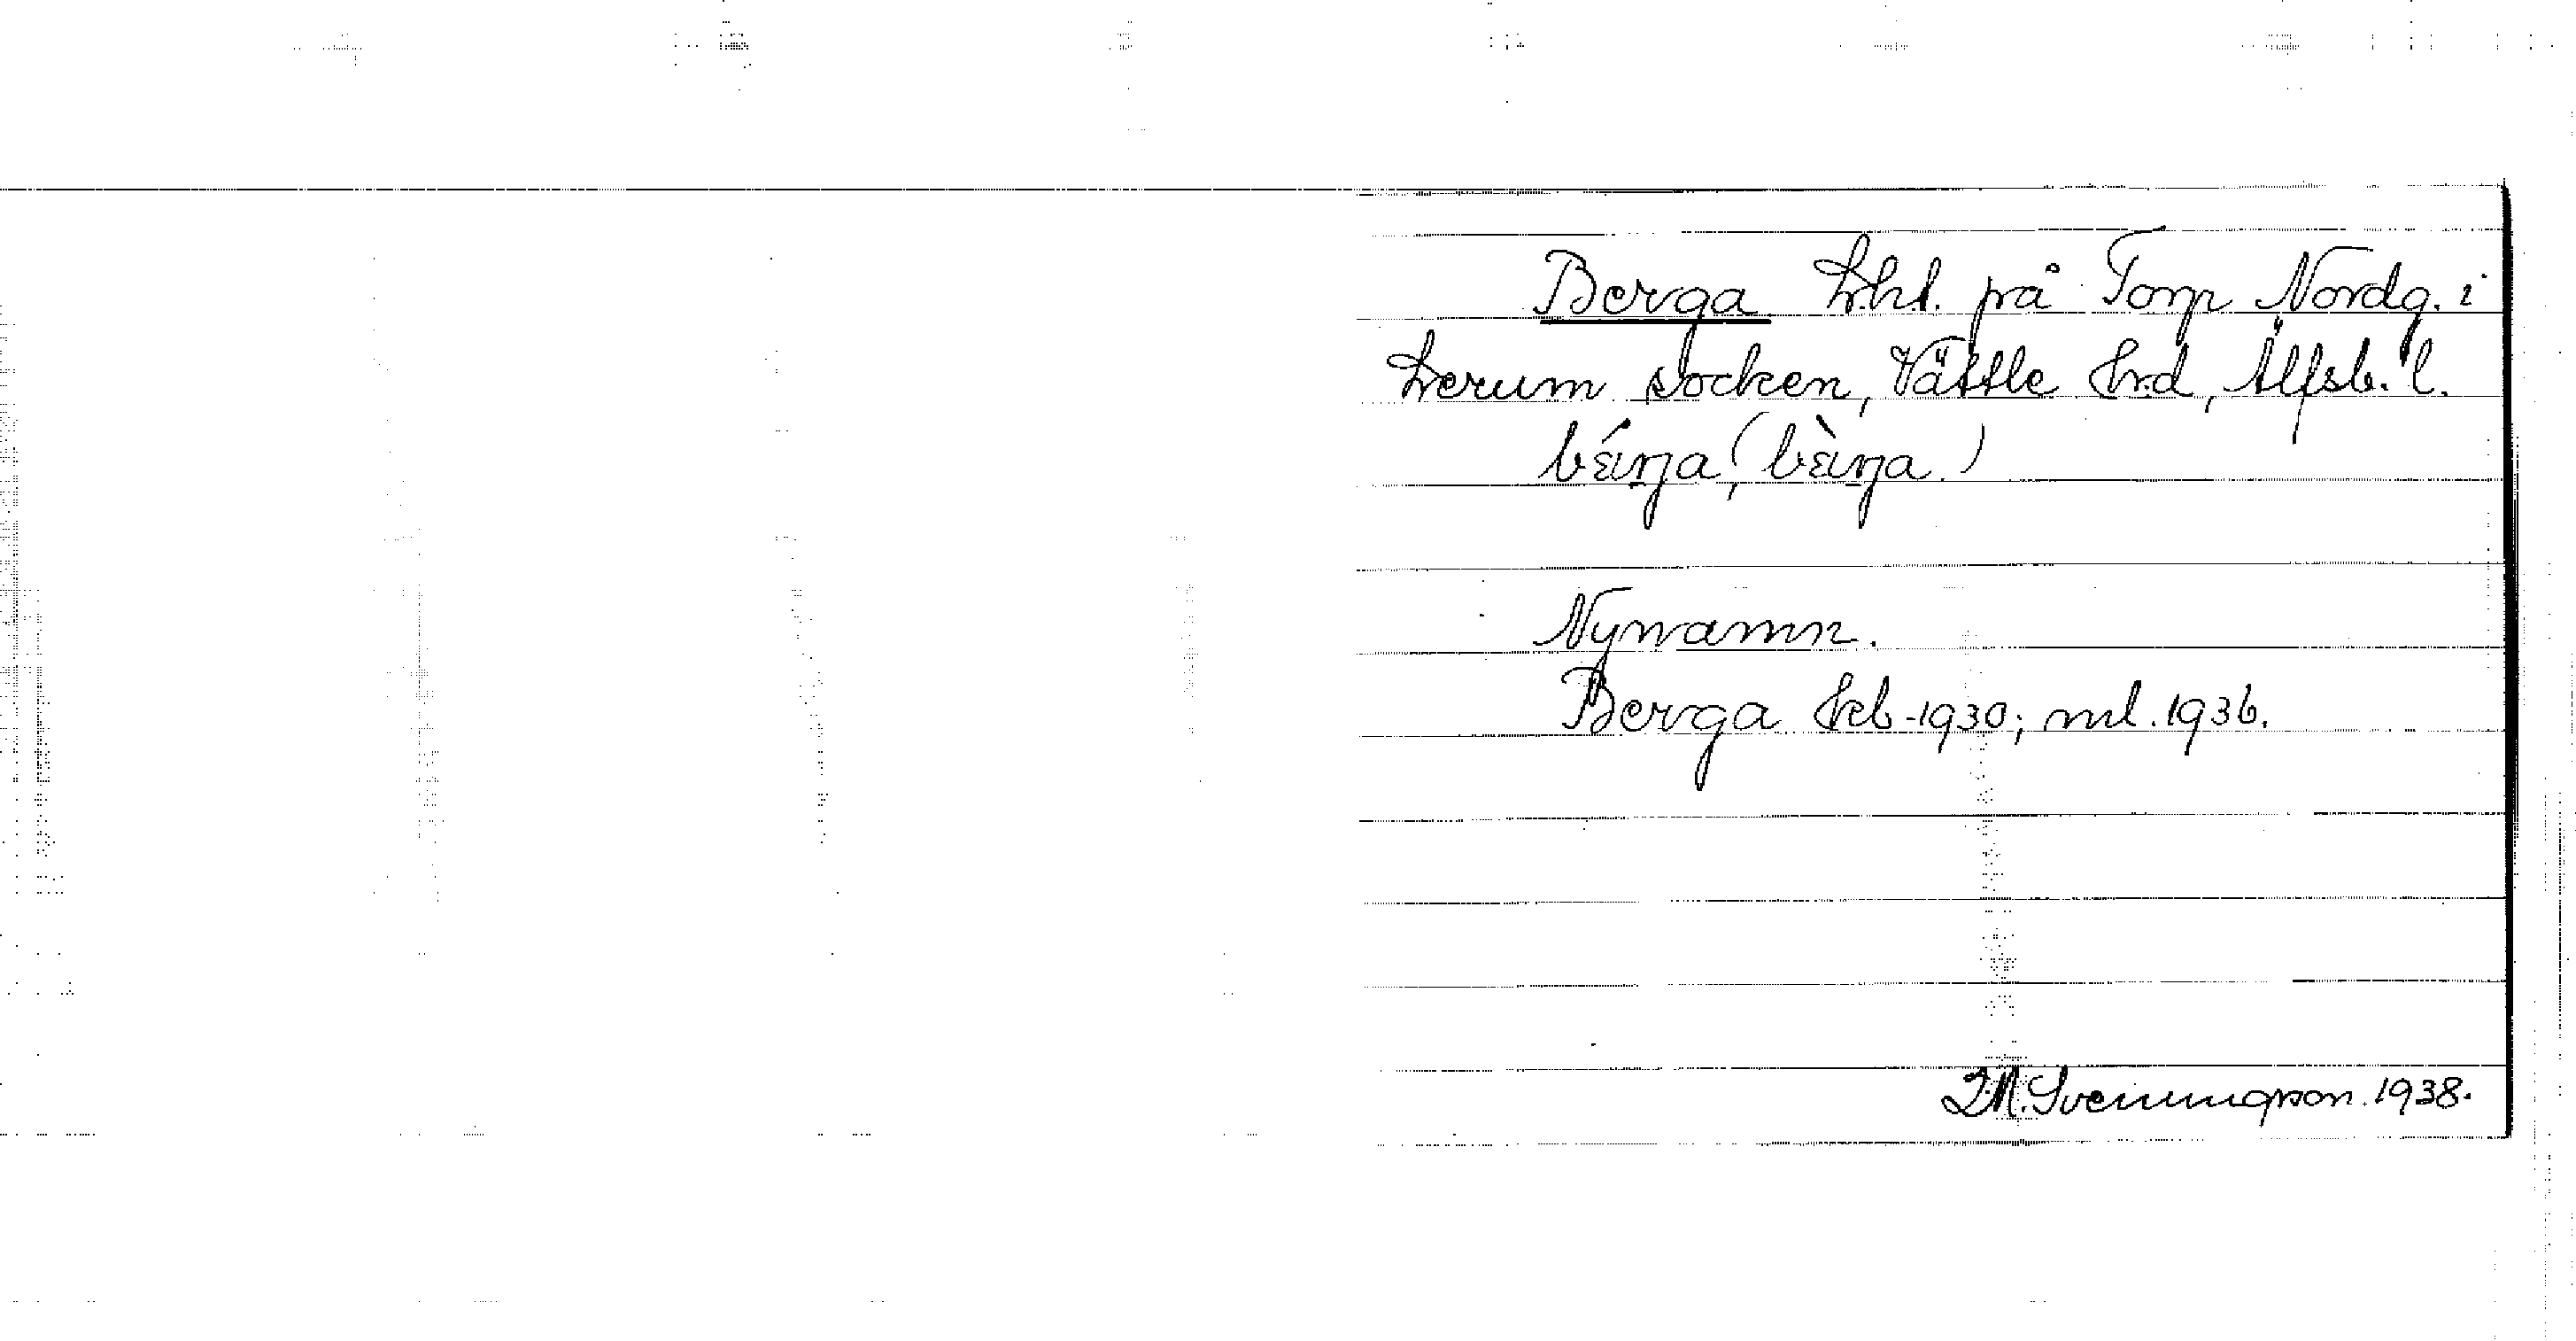 Berga l.h.l. på Torp Nordg. i
Lerum socken, Vättle hrd, Älfsb. l.
Nynamn.
Berga hfb-1930; ml. 1936.
Svenungson. 1938.